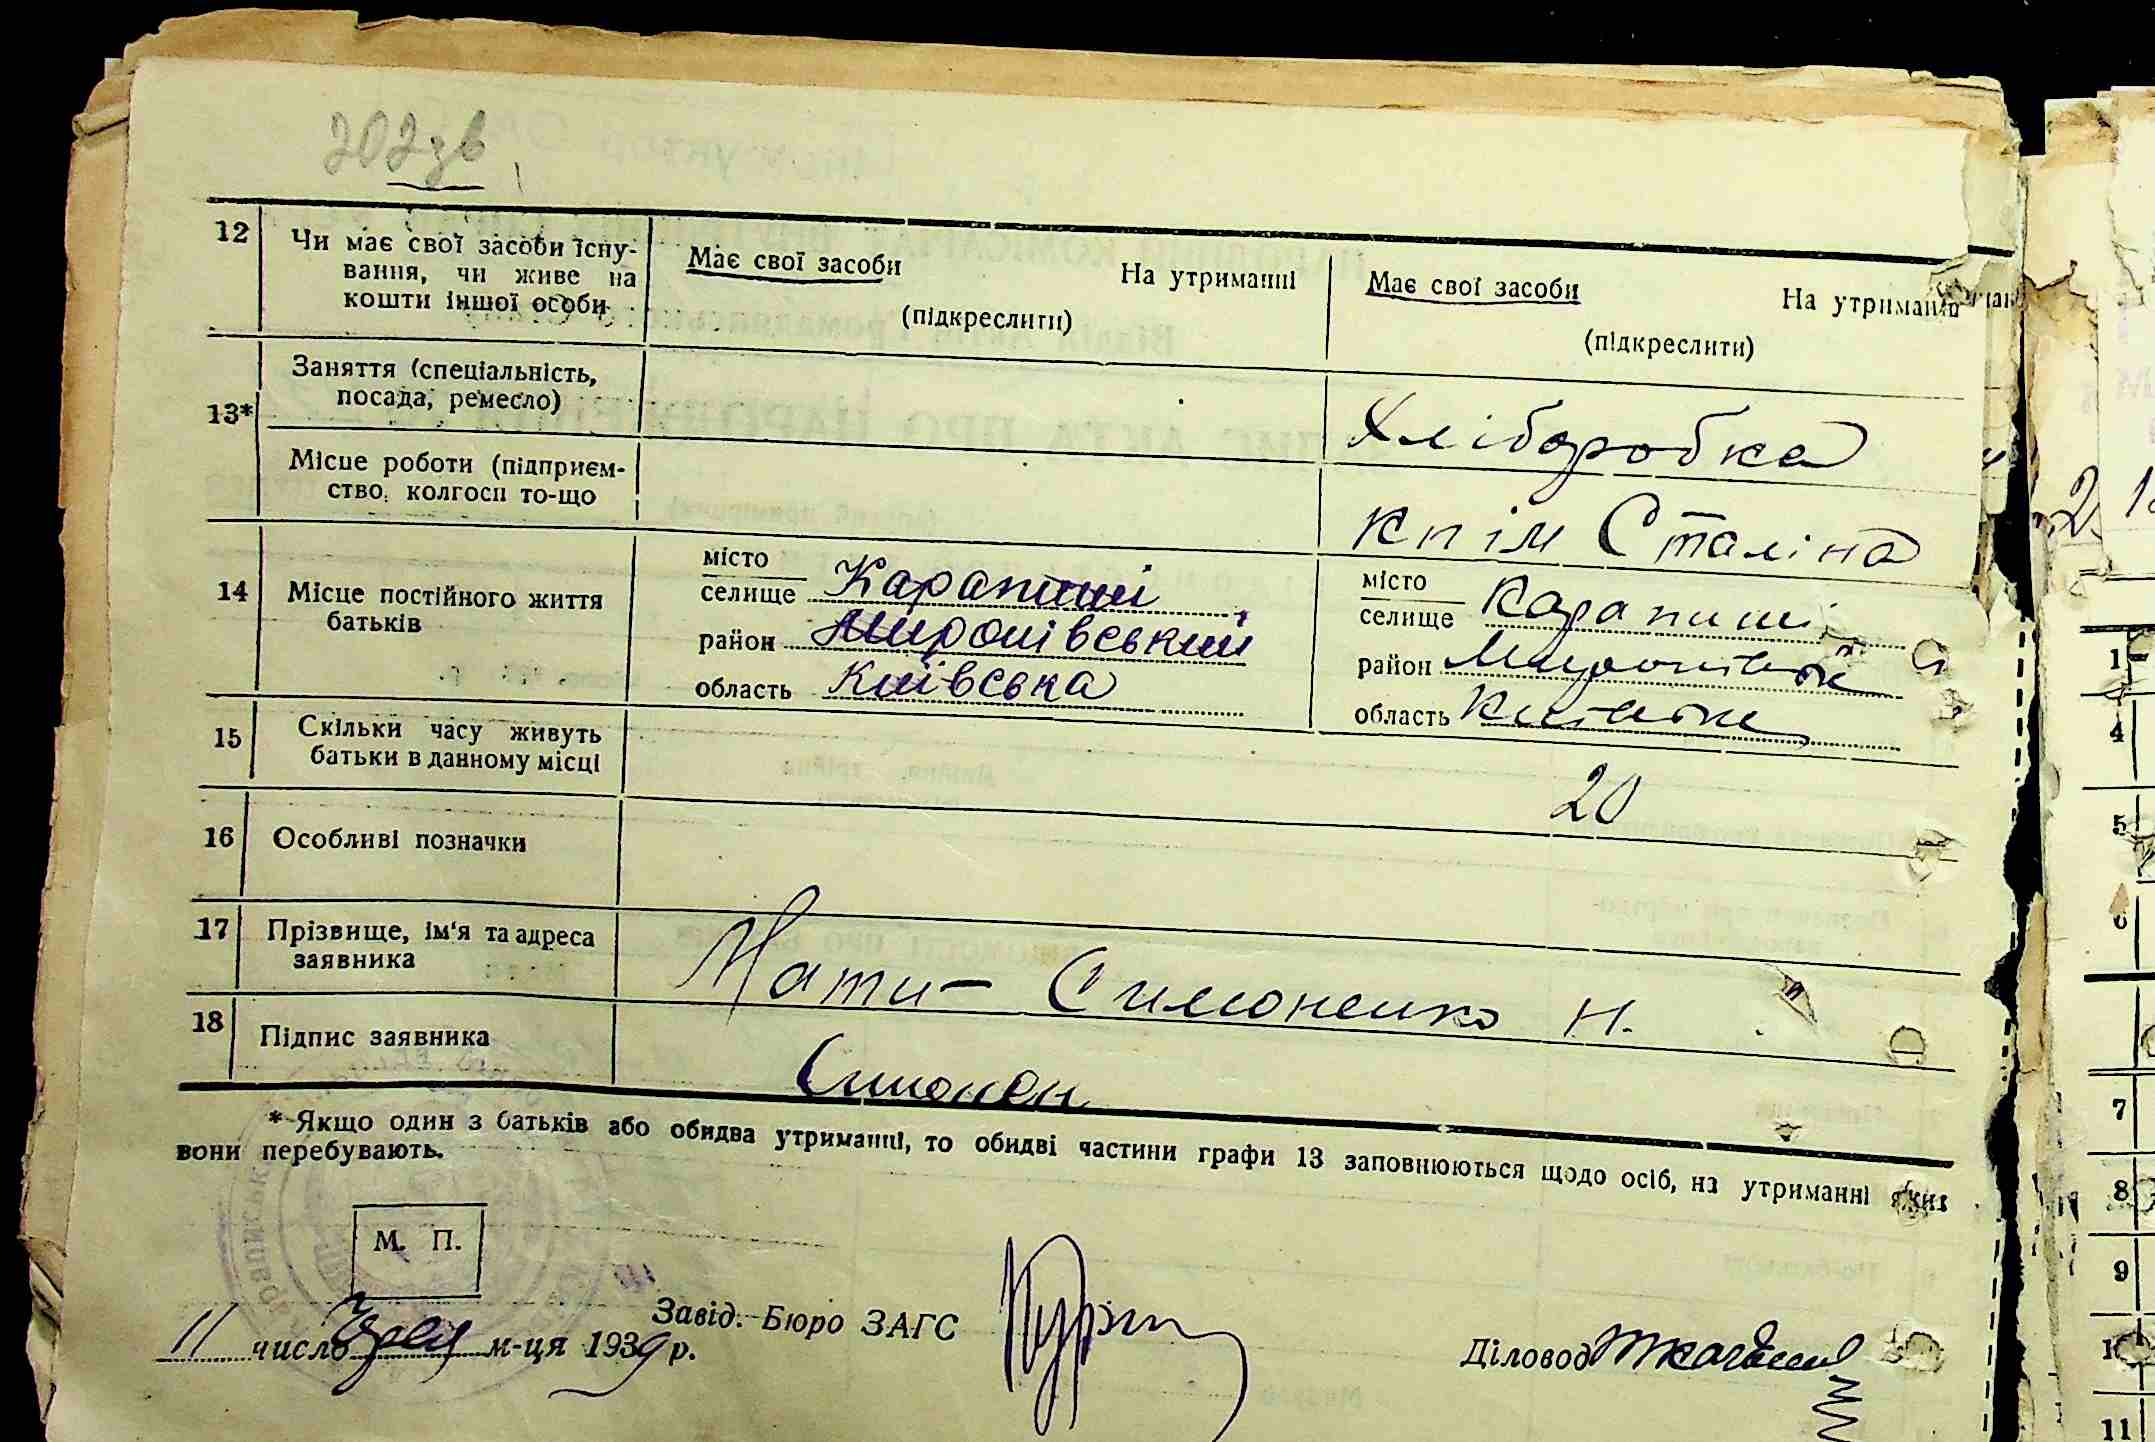 202зв
12 Чи має свої засоби існу-
вання, чи живе на
кошти іншої особи
Має свої засоби На утриманні
(підкреслити)
Має свої засоби На утриманні
(підкреслити)
13* Заняття (спеціальність,
посада, ремесло)
Хліборобка
Місце роботи (підприєм-
ство, колгосп то-що
кп ім Сталіна
14 Місце постійного життя
батьків
місто
селище Карапиші
район Миронівський
область Київська
місто
селище Карапиші
район
область
15 Скільки часу живуть
батьки в данному місці
20
16 Особливі позначки
17 Прізвище, ім'я та адреса
заявника
Мати - Симоненко Н.
18 Підпис заявника
Симонен
* Якщо один з батьків або обидва утриманні, то обидві частини графи 13 заповнюються щодо осіб, на утриманні яких
вони перебувають.
М. П.
11 число м-ця 1939 р.
Завід. Бюро ЗАГС
Діловод
2
1
4
5
6
7
8
9
11